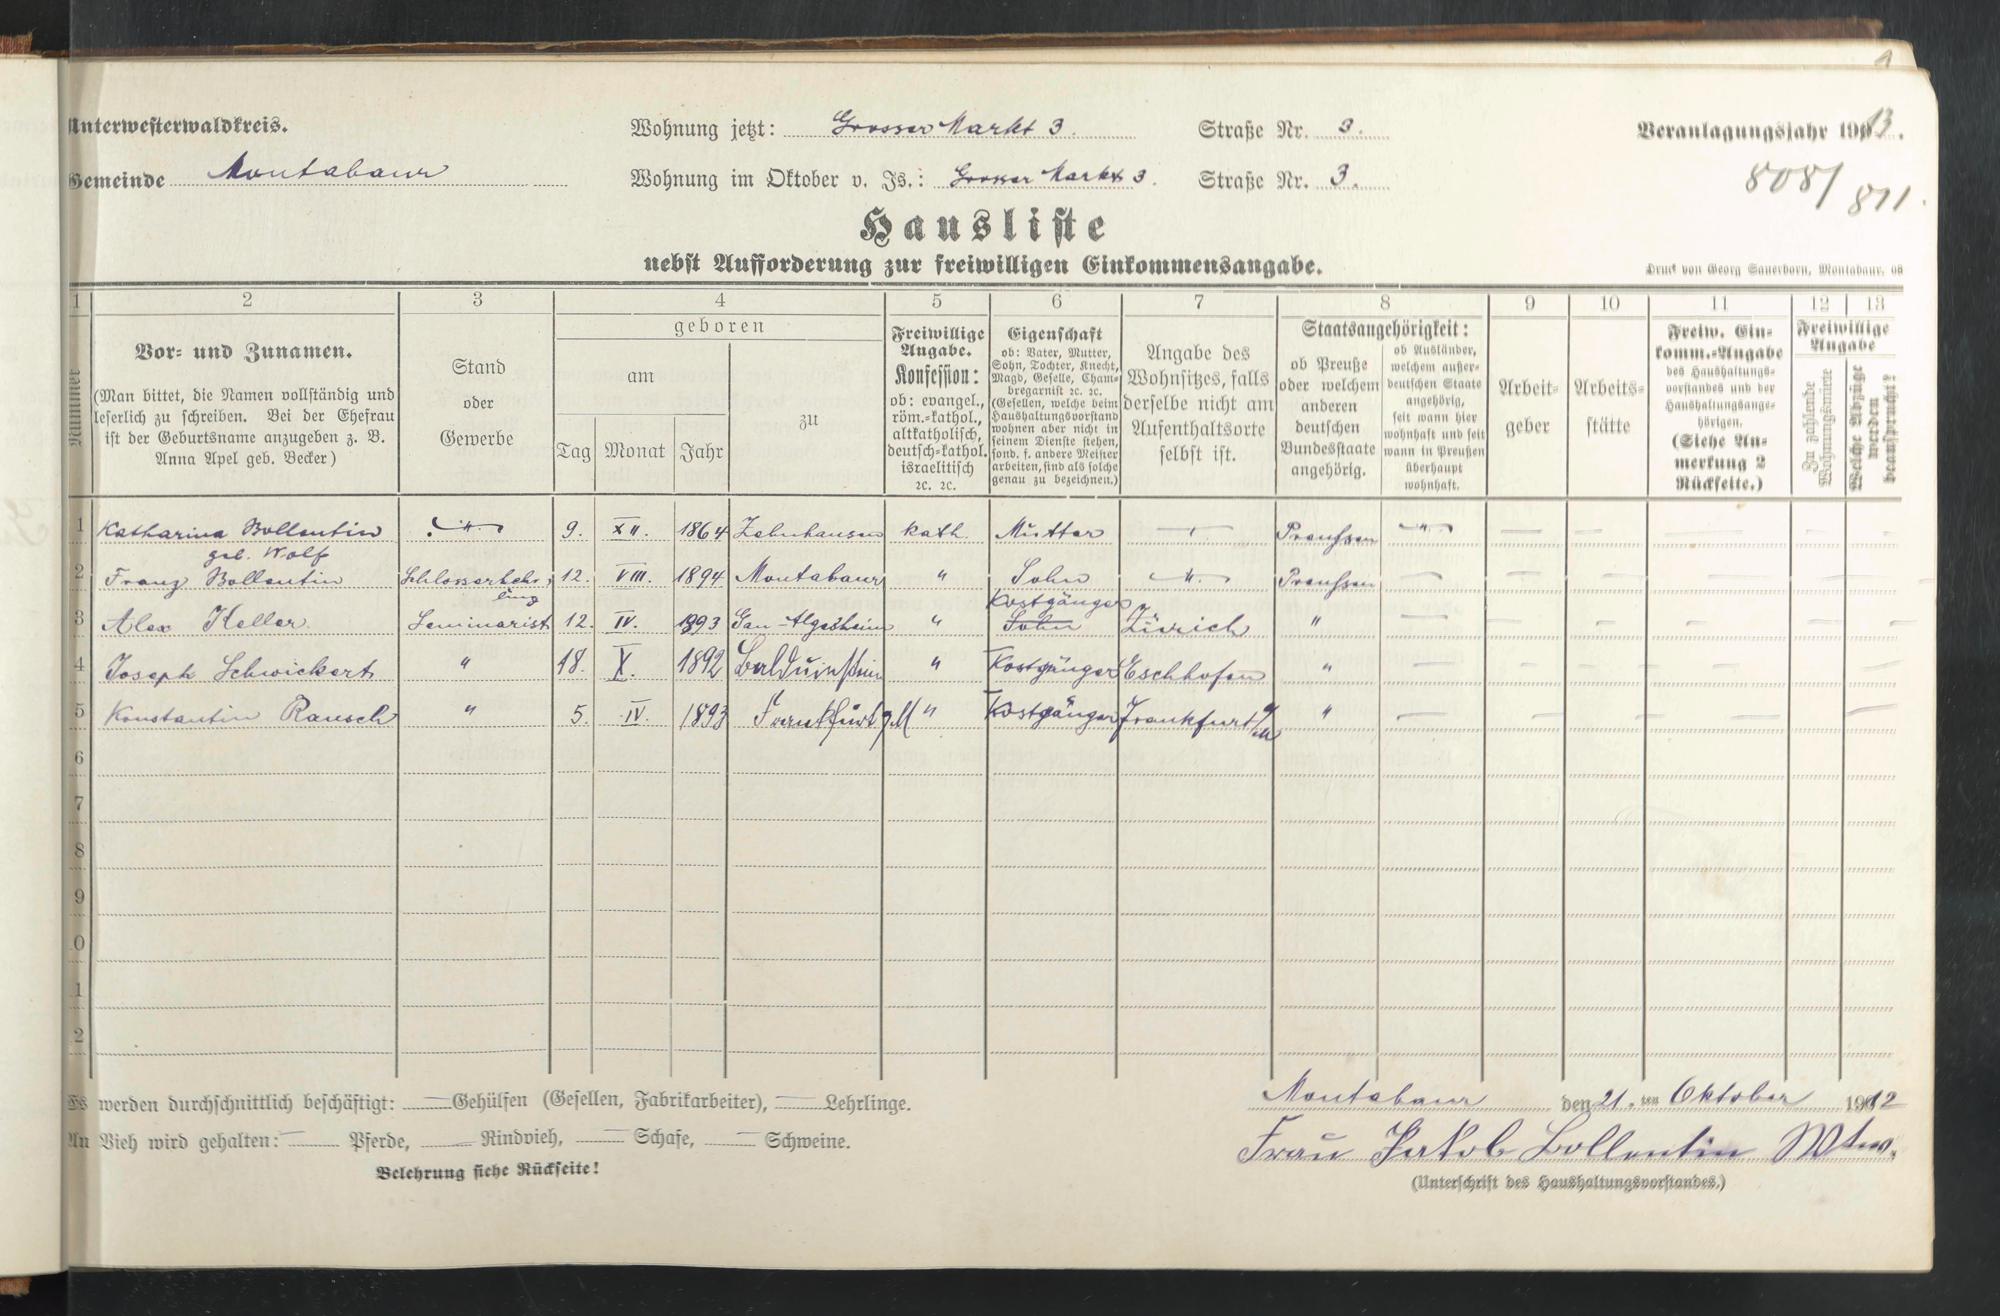 Unterwesterwaldkreis.
Wohnung jetzt: Grosser Markt 3. Straße Nr. 3.
Veranlagungsjahr 1913.
Gemeinde Montabaur
Wohnung im Oktober v. Js.: Grosser Markt 3. Straße Nr. 3.
808/811.
Hausliste
nebst Aufforderung zur freiwilligen Einkommensangabe.
Druck von Georg Sauerborn, Montabaur. 08
1 2 3 4 5 6 7 8 9 10 11 12 13
Nummer
Vor- und Zunamen.
(Man bittet, die Namen vollständig und
leserlich zu schreiben. Bei der Ehefrau
ist der Geburtsname anzugeben z. B.
Anna Apel geb. Becker)
Stand
oder
Gewerbe
geboren
am
Tag Monat Jahr
zu
Freiwillige
Angabe.
Konfession:
ob: evangel.,
röm.-kathol.,
altkatholisch,
deutsch-kathol.
israelitisch
ꝛc. ꝛc.
Eigenschaft
ob: Vater, Mutter,
Sohn, Tochter, Knecht,
Magd, Geselle, Cham-
bregarnist ꝛc. ꝛc.
(Gesellen, welche beim
Haushaltungsvorstand
wohnen aber nicht in
seinem Dienste stehen,
sond. f. andere Meister
arbeiten, sind als solche
genau zu bezeichnen.)
Angabe des
Wohnsitzes, falls
derselbe nicht am
Aufenthaltsorte
selbst ist.
Staatsangehörigkeit:
ob Preuße
oder welchem
anderen
deutschen
Bundesstaate
angehörig.
ob Ausländer,
welchem außer-
deutschen Staate
angehörig,
seit wann hier
wohnhaft und seit
wann in Preußen
überhaupt
wohnhaft.
Arbeit-
geber
Arbeits-
stätte
Freiw. Ein-
komm.-Angabe
des Haushaltungs-
vorstandes und der
Haushaltungsange-
hörigen.
(Siehe An-
merkung 2
Rückseite.)
Freiwillige
Angabe
Zu zahlende
Wohnungsmiete
Welche Abzüge
werden
beansprucht?
1 Katharina Bollentin — " — 9. XII. 1864 Zehnhausen kath. Mutter — Preußen — " — — — — — —
geb. Wolf
2 Franz Bollentin Schlosserlehr- 12. VIII. 1894 Montabaur " Sohn — " — Preußen — — — — — —
ling
Kostgänger
3 Alex Keller Seminarist 12. IV. 1893 Gau-Algesheim " Sohn Zürich " — — — — — —
4 Joseph Schwickert " 18. X. 1892 Balduinstein " Kostgänger Eschhofen " — — — — — —
5 Konstantin Rausch " 5. IV. 1893 Frankfurt a/M " Kostgänger Frankfurt a/M " — — — — — —
6
7
8
9
0
1
2
Es werden durchschnittlich beschäftigt: — Gehülfen (Gesellen, Fabrikarbeiter), — Lehrlinge.
An Vieh wird gehalten: — Pferde, — Rindvieh, — Schafe, — Schweine.
Belehrung siehe Rückseite!
Montabaur den 21. ten Oktober 1912
Frau Jakob Bollentin Wtw.
(Unterschrift des Haushaltungsvorstandes.)